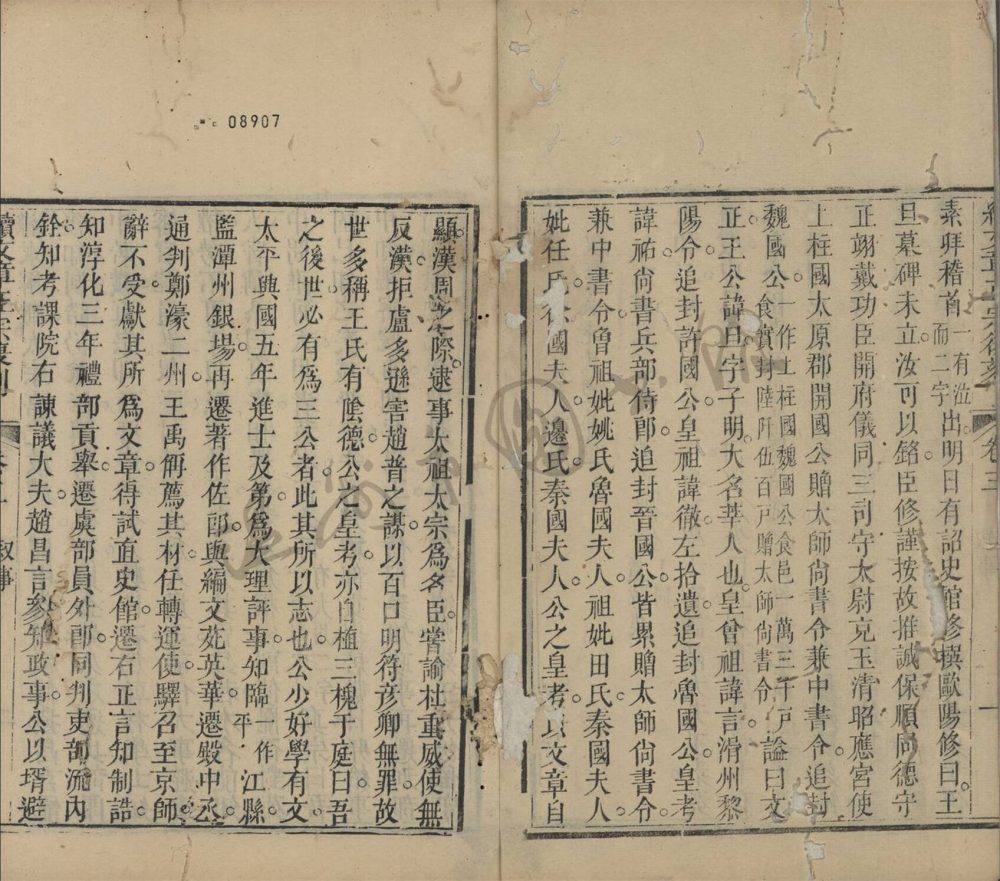 素拜稽首一有泣而二字出明日有詔史館修撰歐陽修曰王
旦墓碑未立汝可以銘臣修謹按故推誠保順同德守
正翊戴功臣開府儀同三司守太尉充玉清昭應宮使
上柱國太原郡開國公贈太師尚書令兼中書令追封
魏國公一作上柱國魏國公食邑一萬三千戸食實封陸阡伍百戸贈太師尚書令謚曰文
正王公諱旦字子明大名莘人也皇曾祖諱言滑州黎
陽令追封許國公皇祖諱徹左拾遺追封魯國公皇考
諱祐尚書兵部侍郎追封晉國公皆累贈太師尚書令
兼中書令魯祖妣姚氏魯國夫人祖妣田氏秦國夫人
妣任氏徐國夫人邊氏秦國夫人公之皇考以文章自
顯漢周之際逮事太祖太宗為名臣嘗諭杜重威使無
反漢拒盧多遜害趙普之謀以百口明符彥卿無罪故
世多稱王氏有陰德公之皇考亦自植三槐于庭曰吾
之後世必有為三公者此其所以志也公少好學有文
太平興國五年進士及第為大理評事知臨一作平江縣
監潭州銀場再遷著作佐郎與編文苑英華遷殿中丞
通判鄭濠二州王禹偁薦其材任轉運使驛召至京師
辭不受獻其所為文章得試直史館遷右正言知制誥
知淳化三年禮部貢舉遷虞部員外郎同判吏部流內
銓知考課院右諫議大夫趙昌言參知政事公以壻避
08907